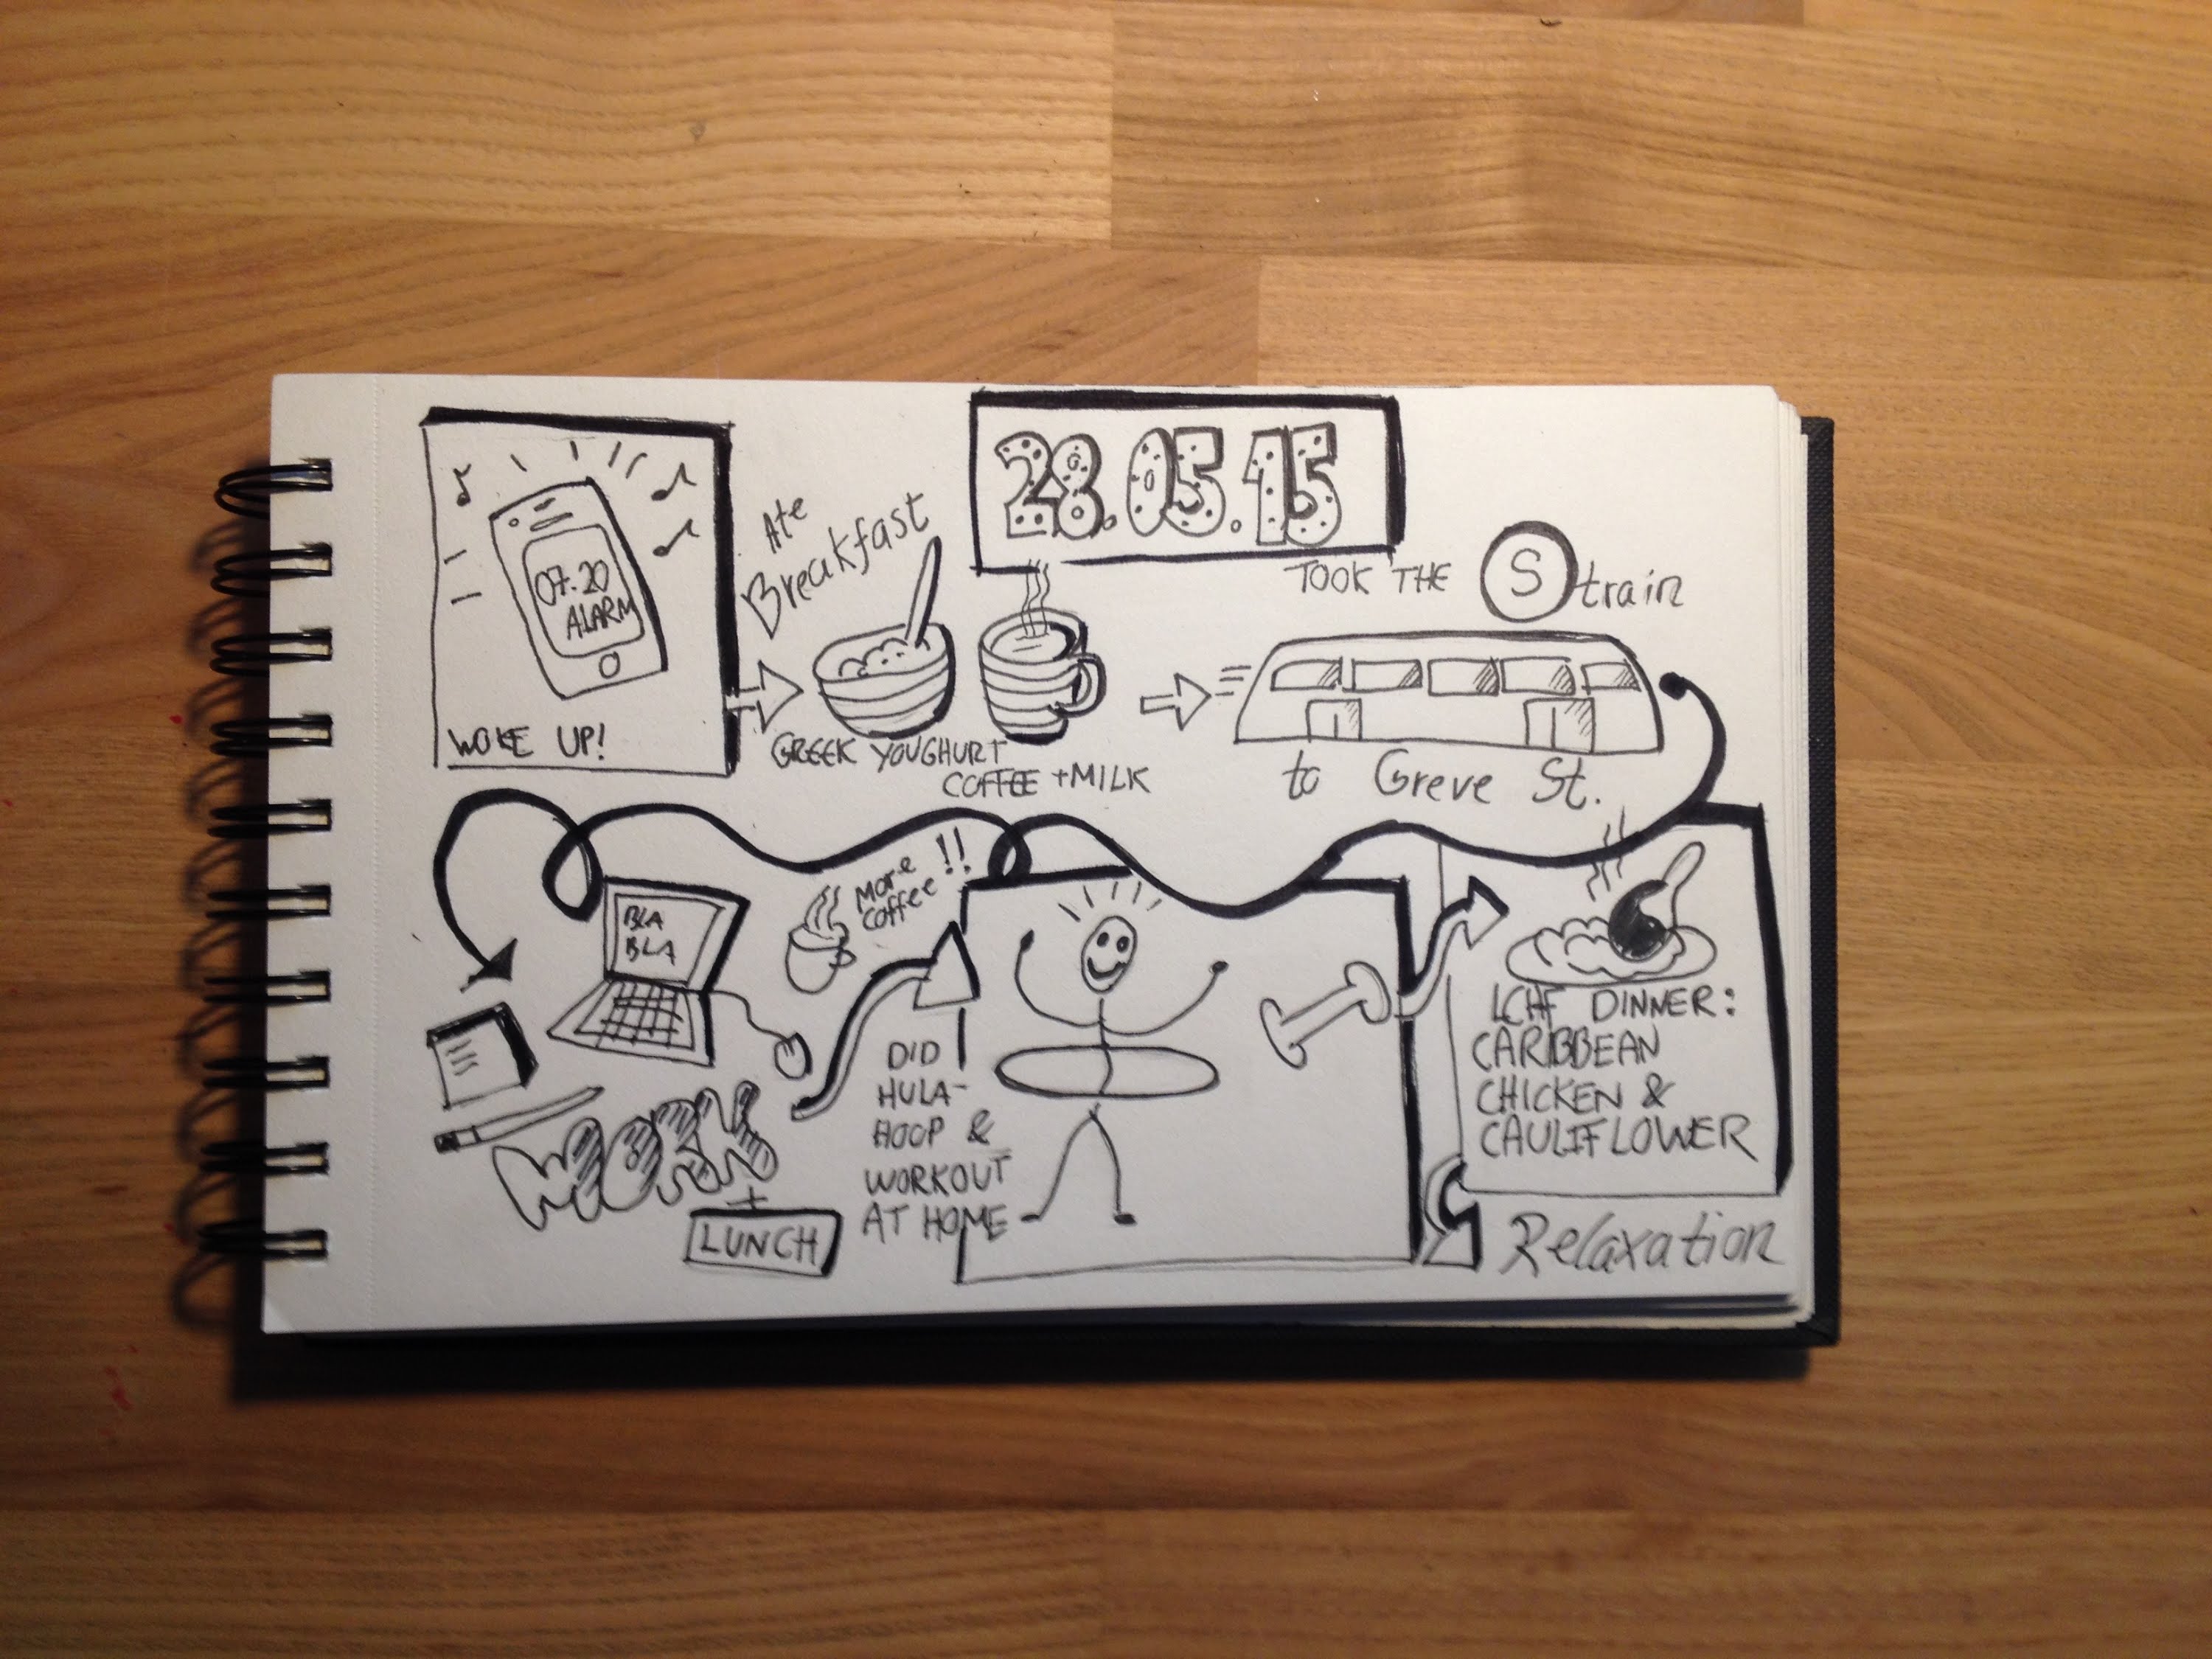 28.05.15
07.20
ALARM
WOKE UP!
Ate
Breakfast
GREEK YOUGHURT
COFFEE + MILK
TOOK THE S train
to Greve St.
BLA
BLA
More
Coffee!!
WORK
+
LUNCH
DID
HULA-
HOOP &
WORKOUT
AT HOME
LCHF DINNER:
CARIBBEAN
CHICKEN &
CAULIFLOWER
Relaxation